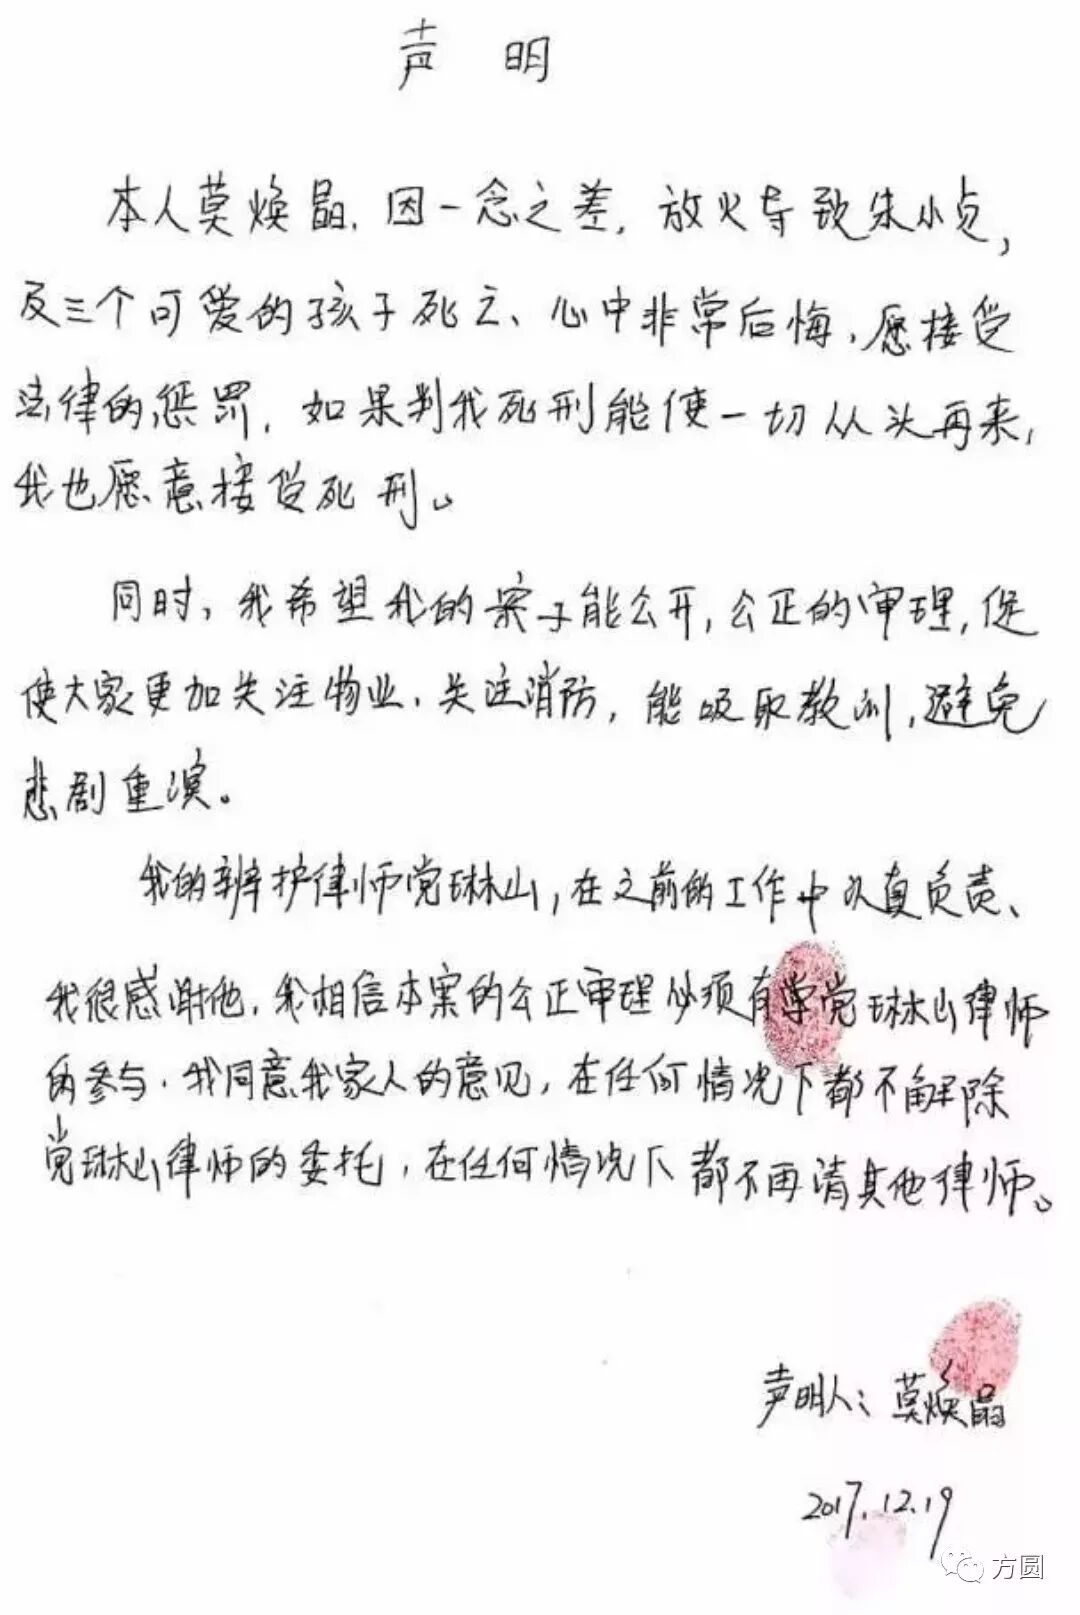 声 明
本人莫焕晶,因一念之差,放火导致朱小贞,
及三个可爱的孩子死亡、心中非常后悔,愿接受
法律的惩罚,如果判我死刑能使一切从头再来,
我也愿意接受死刑。
同时,我希望我的案子能公开,公正的审理,促
使大家更加关注物业、关注消防,能吸取教训,避免
悲剧重演。
我的辩护律师党琳山,在之前的工作中认真负责、
我很感谢他,我相信本案的公正审理必须有党琳山律师
的参与.我同意我家人的意见,在任何情况下都不解除
党琳山律师的委托,在任何情况下都不再请其他律师。
声明人:莫焕晶
2017.12.19
方圆